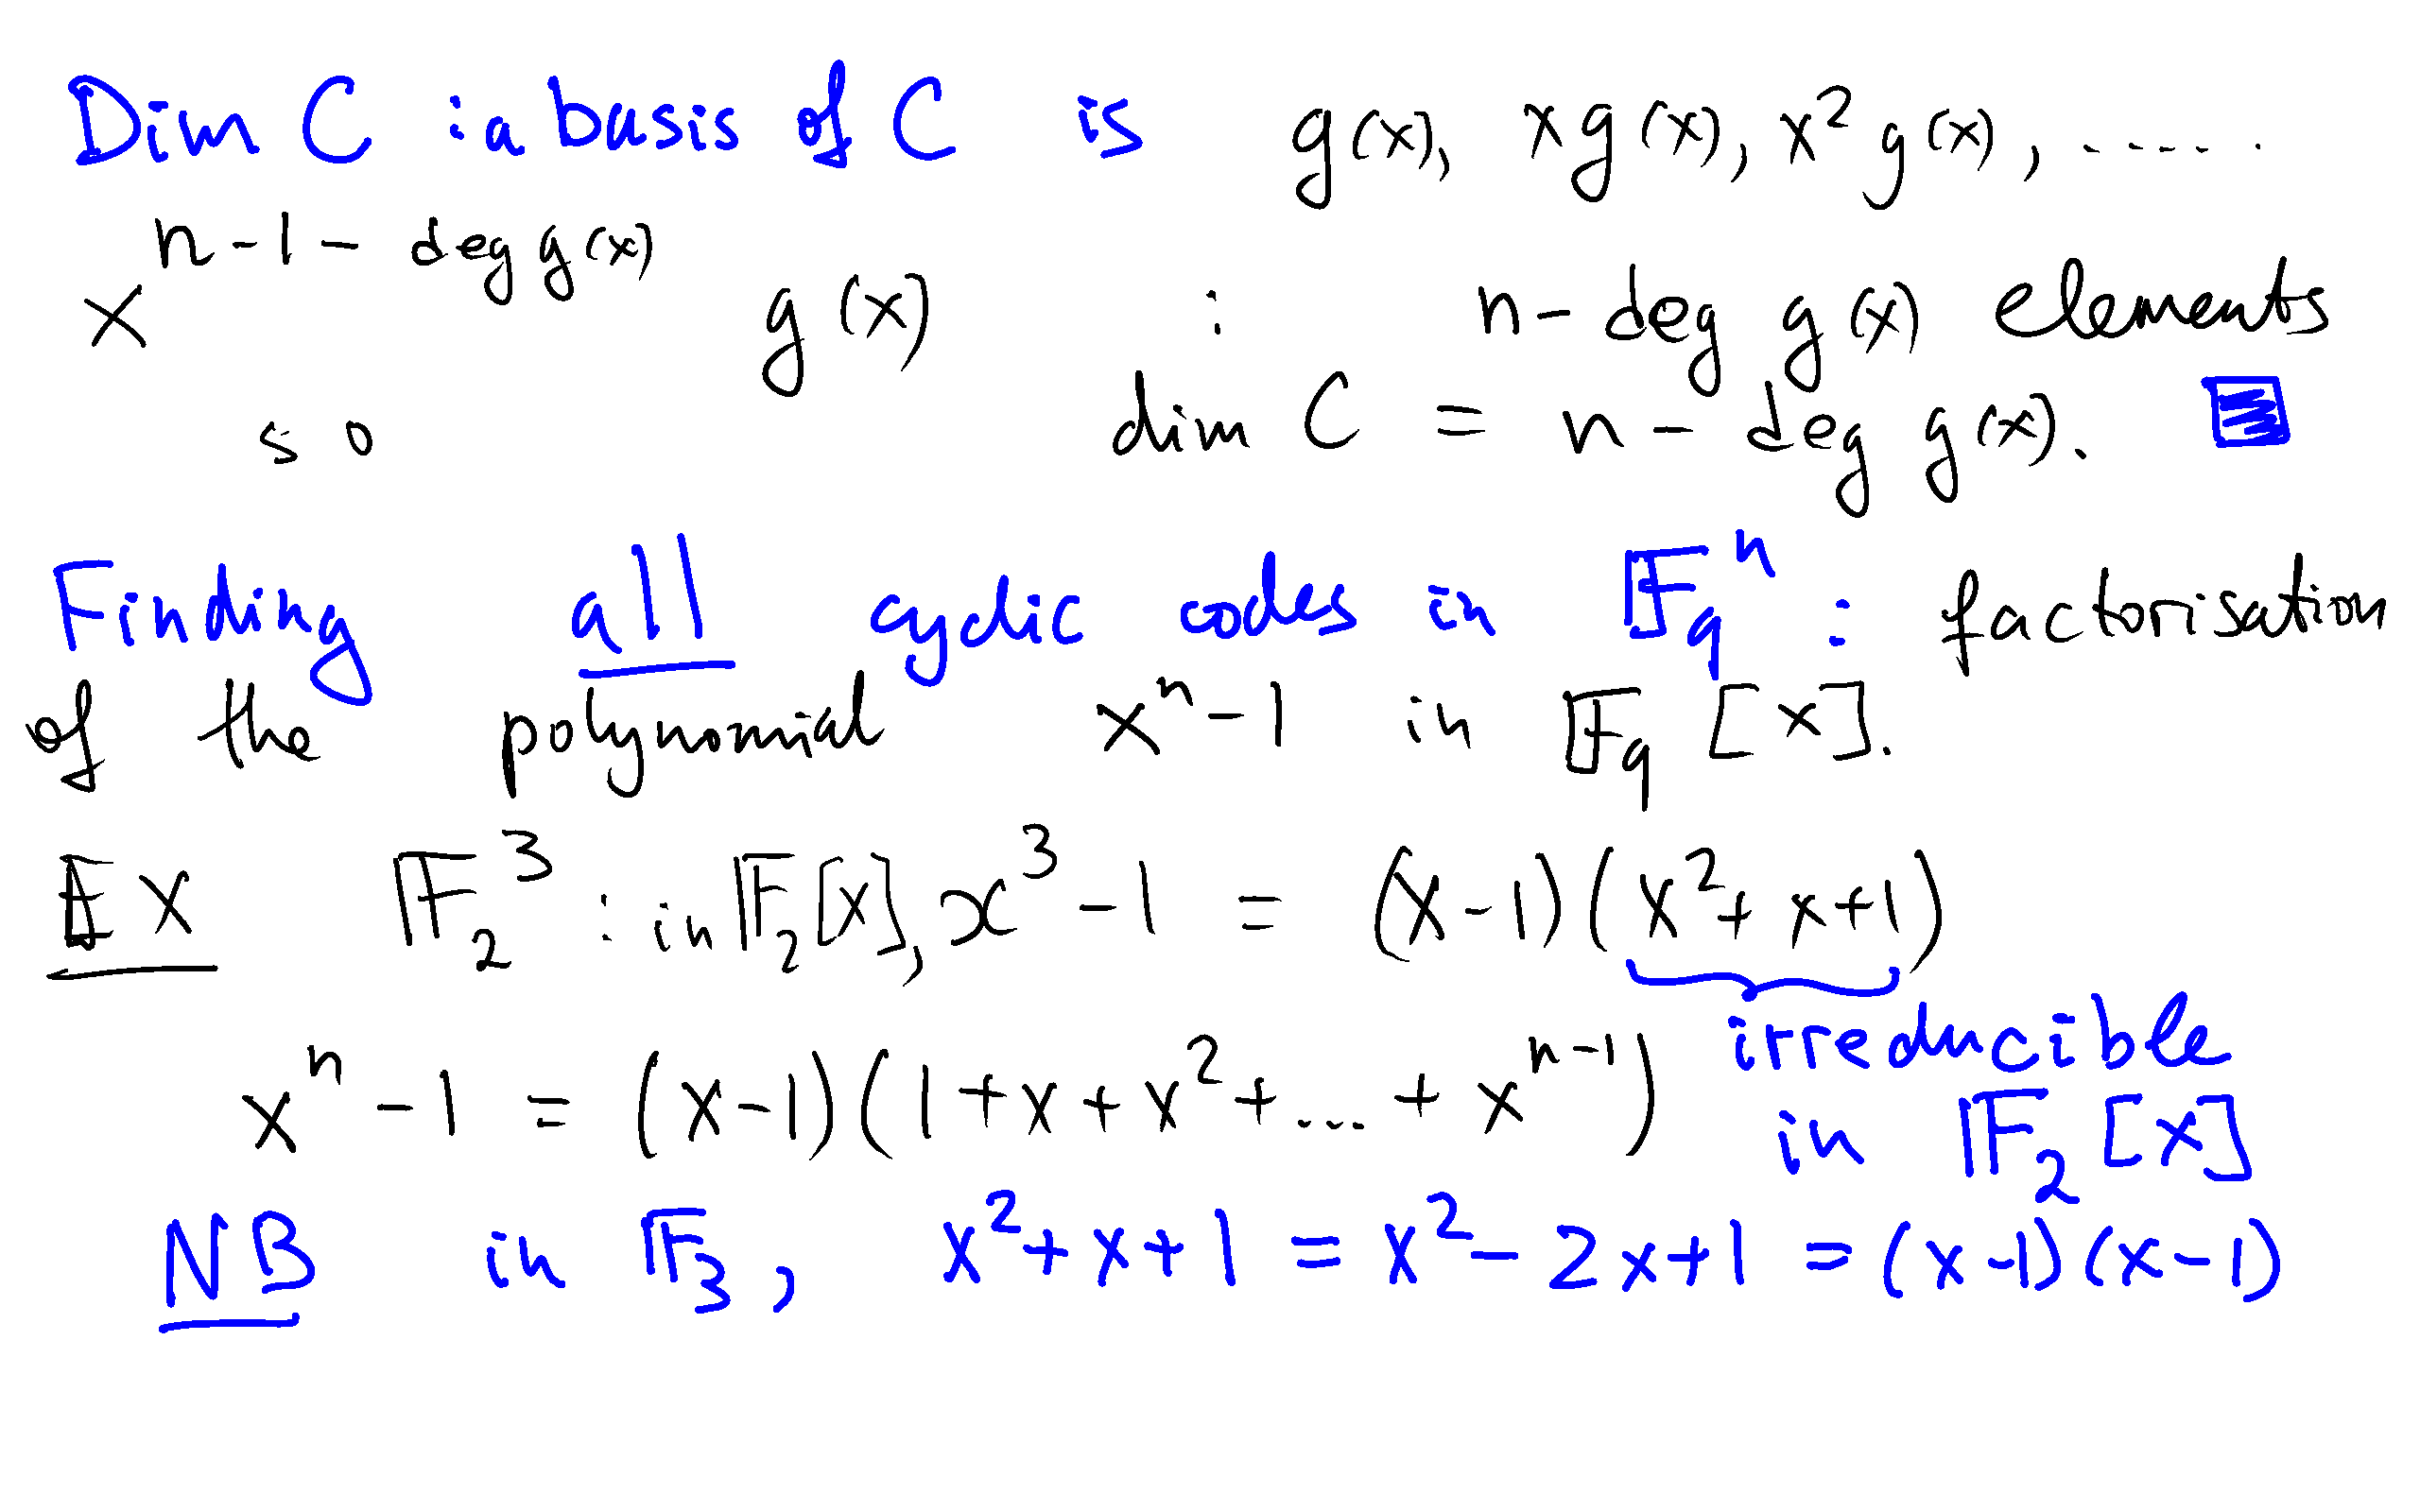 Dim C : a basis of C is g(x), xg(x), x²g(x), .....
x^{n-1-deg g(x)} g(x) : n - deg g(x) elements
so dim C = n - deg g(x).
Finding all cyclic codes in 𝔽_q^n : factorisation
of the polynomial x^n - 1 in 𝔽_q [x].
Ex 𝔽_2^3 : in 𝔽_2[x], x³ - 1 = (x-1)(x²+x+1)
irreducible
x^n - 1 = (x-1)(1+x+x²+...+x^{n-1}) in 𝔽_2 [x]
NB in 𝔽_3, x²+x+1 = x²-2x+1 = (x-1)(x-1)